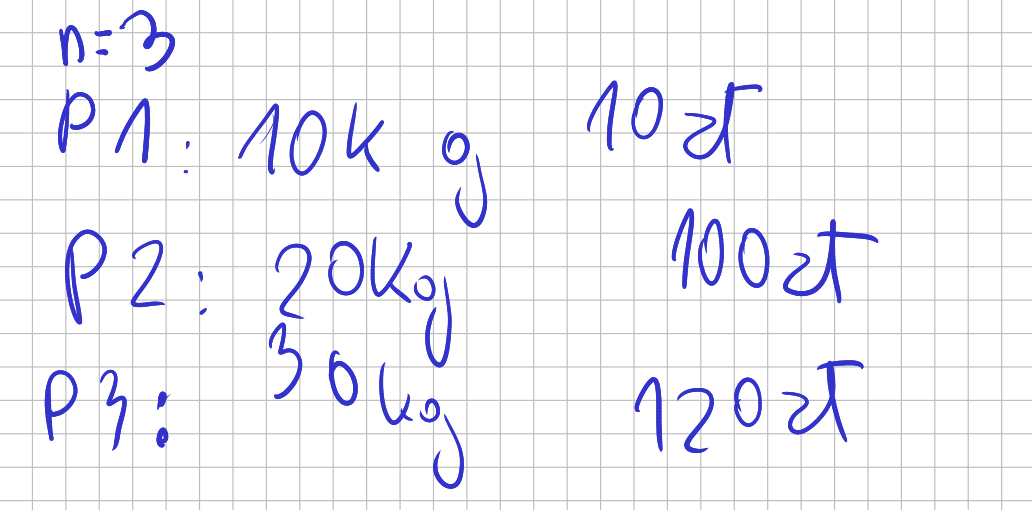 n=3
P1: 10kg 10zł
P2: 20kg 100zł
P3: 30kg 120zł